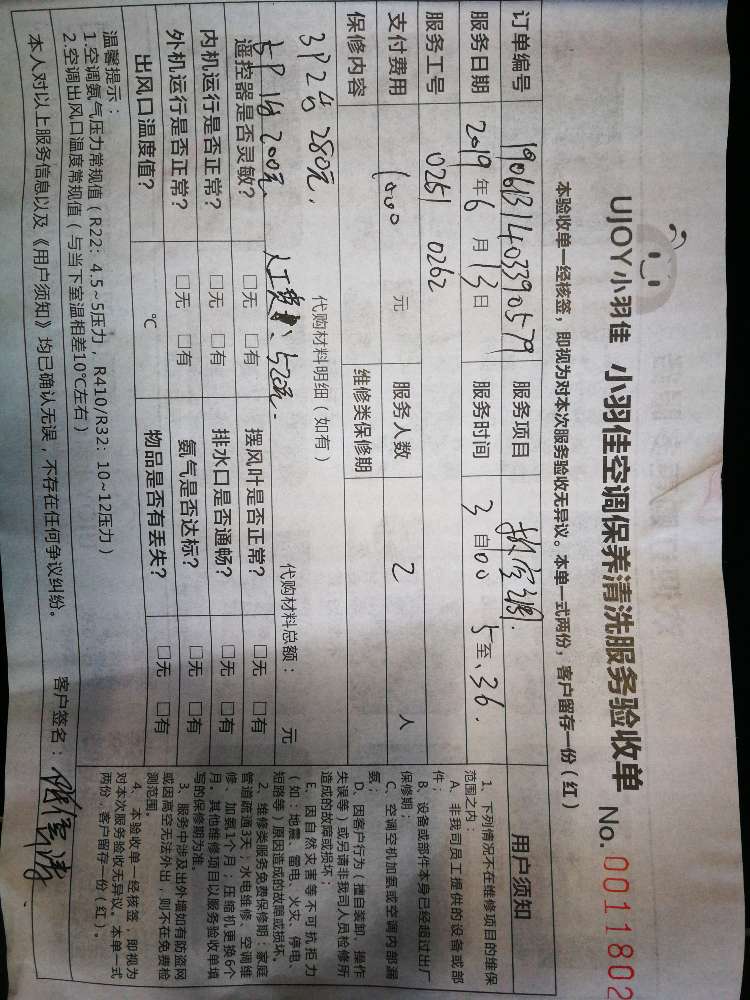 UJOY小羽佳 小羽佳空调保养清洗服务验收单 No.0011802
本验收单一经核签，即视为对本次服务验收无异议。本单一式两份，客户留存一份（红）
订单编号 1906131403390579 服务项目
服务日期 2019年6月13日 服务时间 3自00 5至36.
服务工号 0251 0262
支付费用 1000 元 服务人数 2 人
保修内容 维修类保修期
代购材料明细（如有） 代购材料总额： 元
3P2台 280元.
5P1台 200元 人工费 520元.
遥控器是否灵敏？ □无 □有 摆风叶是否正常？ □无 □有
内机运行是否正常？ □无 □有 排水口是否通畅？ □无 □有
外机运行是否正常？ □无 □有 氨气是否达标？ □无 □有
出风口温度值？ ℃ 物品是否有丢失？ □无 □有
温馨提示：
1.空调氨气压力常规值（R22：4.5~5压力，R410/R32：10~12压力）
2.空调出风口温度常规值（与当下室温相差10℃左右）
本人对以上服务信息以及《用户须知》均已确认无误，不存在任何争议纠纷。 客户签名：
用户须知
1、下列情况不在维修项目的维保
范围之内：
A、非我司员工提供的设备或部
件；
B、设备或部件本身已经超过出厂
保修期；
C、空调空机加氨或空调内部漏
氨；
D、因客户行为（擅自装卸、操作
失误等）或另请非我司人员检修所
造成的故障或损坏；
E、因自然灾害等不可抗拒力
（如：地震、雷电、火灾、停电、
短路等）原因造成的故障或损坏。
2、维修类服务免费保修期：家庭
管道疏通3天；水电维修、空调维
修、加氨1个月；压缩机更换6个
月。其他维修项目以服务验收单填
写的保修期为准。
3、服务中涉及出外墙如有防盗网
或因高空无法外出，则不在免费检
测范围。
4、本验收单一经核签，即视为
对本次服务验收无异议。本单一式
两份，客户留存一份（红）。